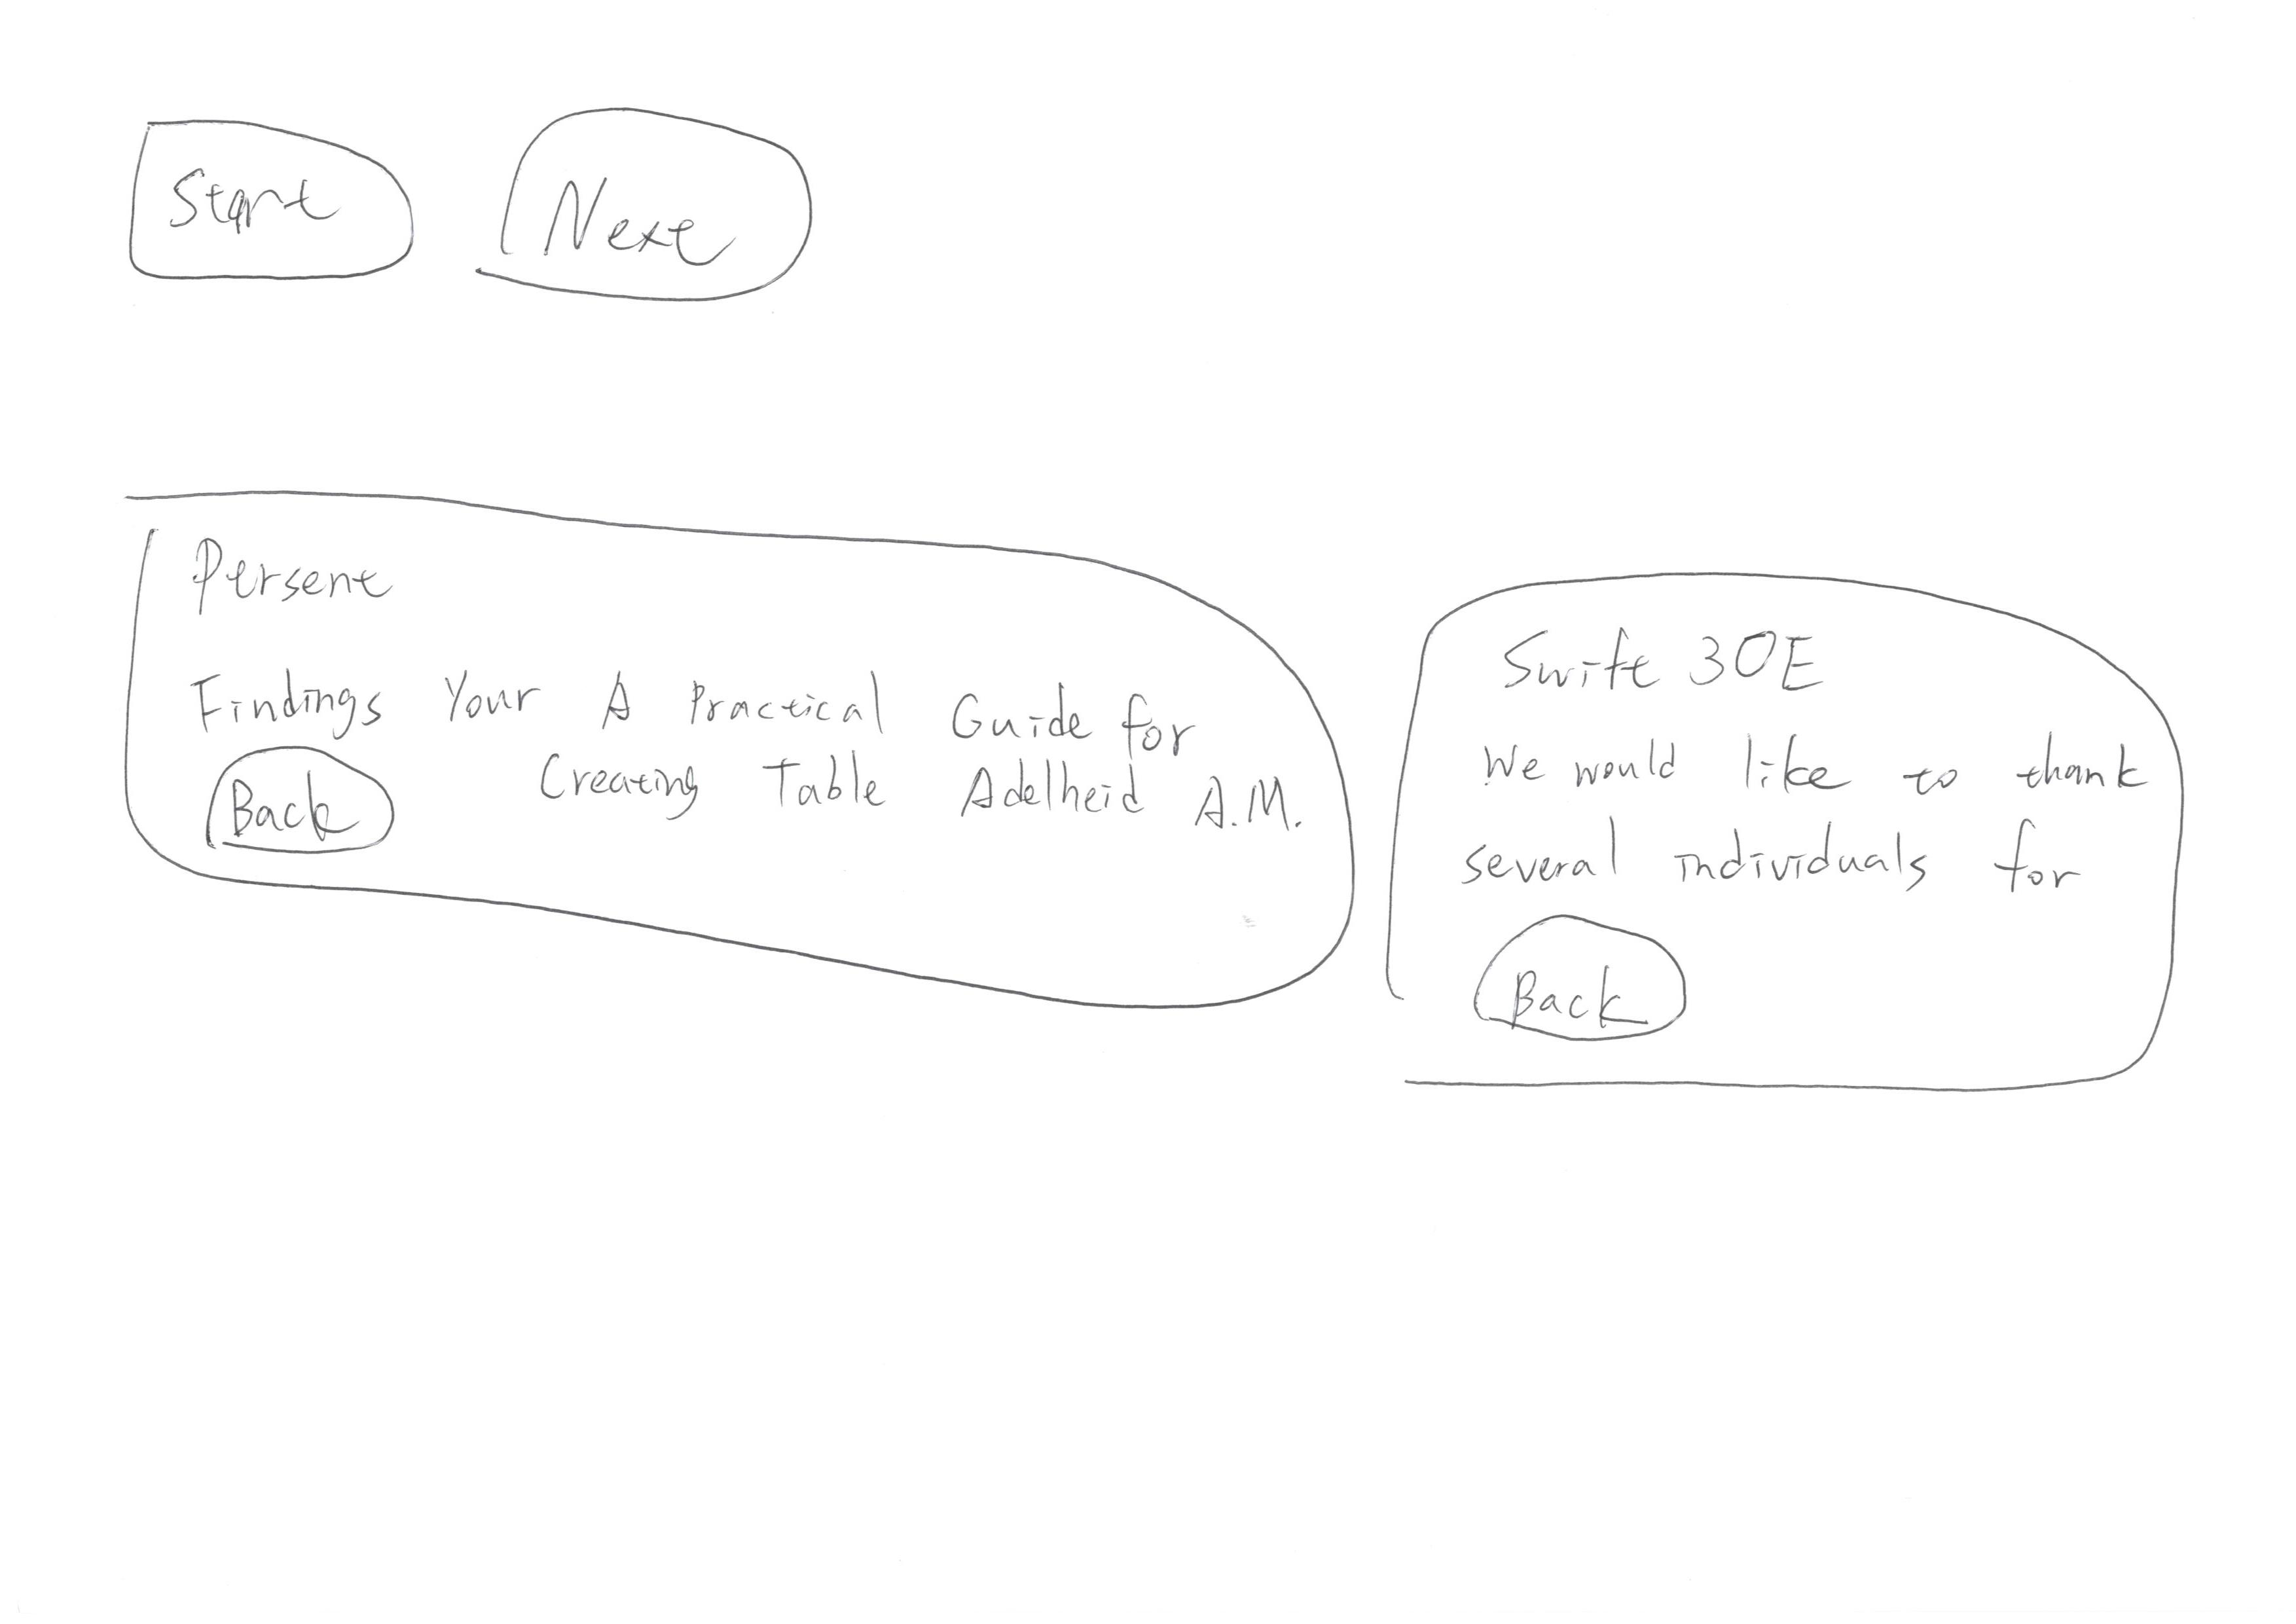 Start
Next
Persent
Findings Your A Practical Guide for
Creating Table Adelheid A.M.
Back
Swift 30E
We would like to thank
several individuals for
Back